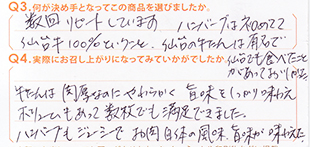 Q3.何が決め手となってこの商品を選びましたか。
数回リピートしています ハンバーグは初めてで
仙台牛100%ということ、仙台の牛たんは有名で
Q4.実際にお召し上がりになってみていかがでしたか。
仙台でも食べたこと
があっておいしかった
牛たんは肉厚なのにやわらかく 旨味をしっかり味わえ
ボリュームもあって数枚でも満足できました。
ハンバーグもジューシーでお肉自体の風味 旨味が味わえた